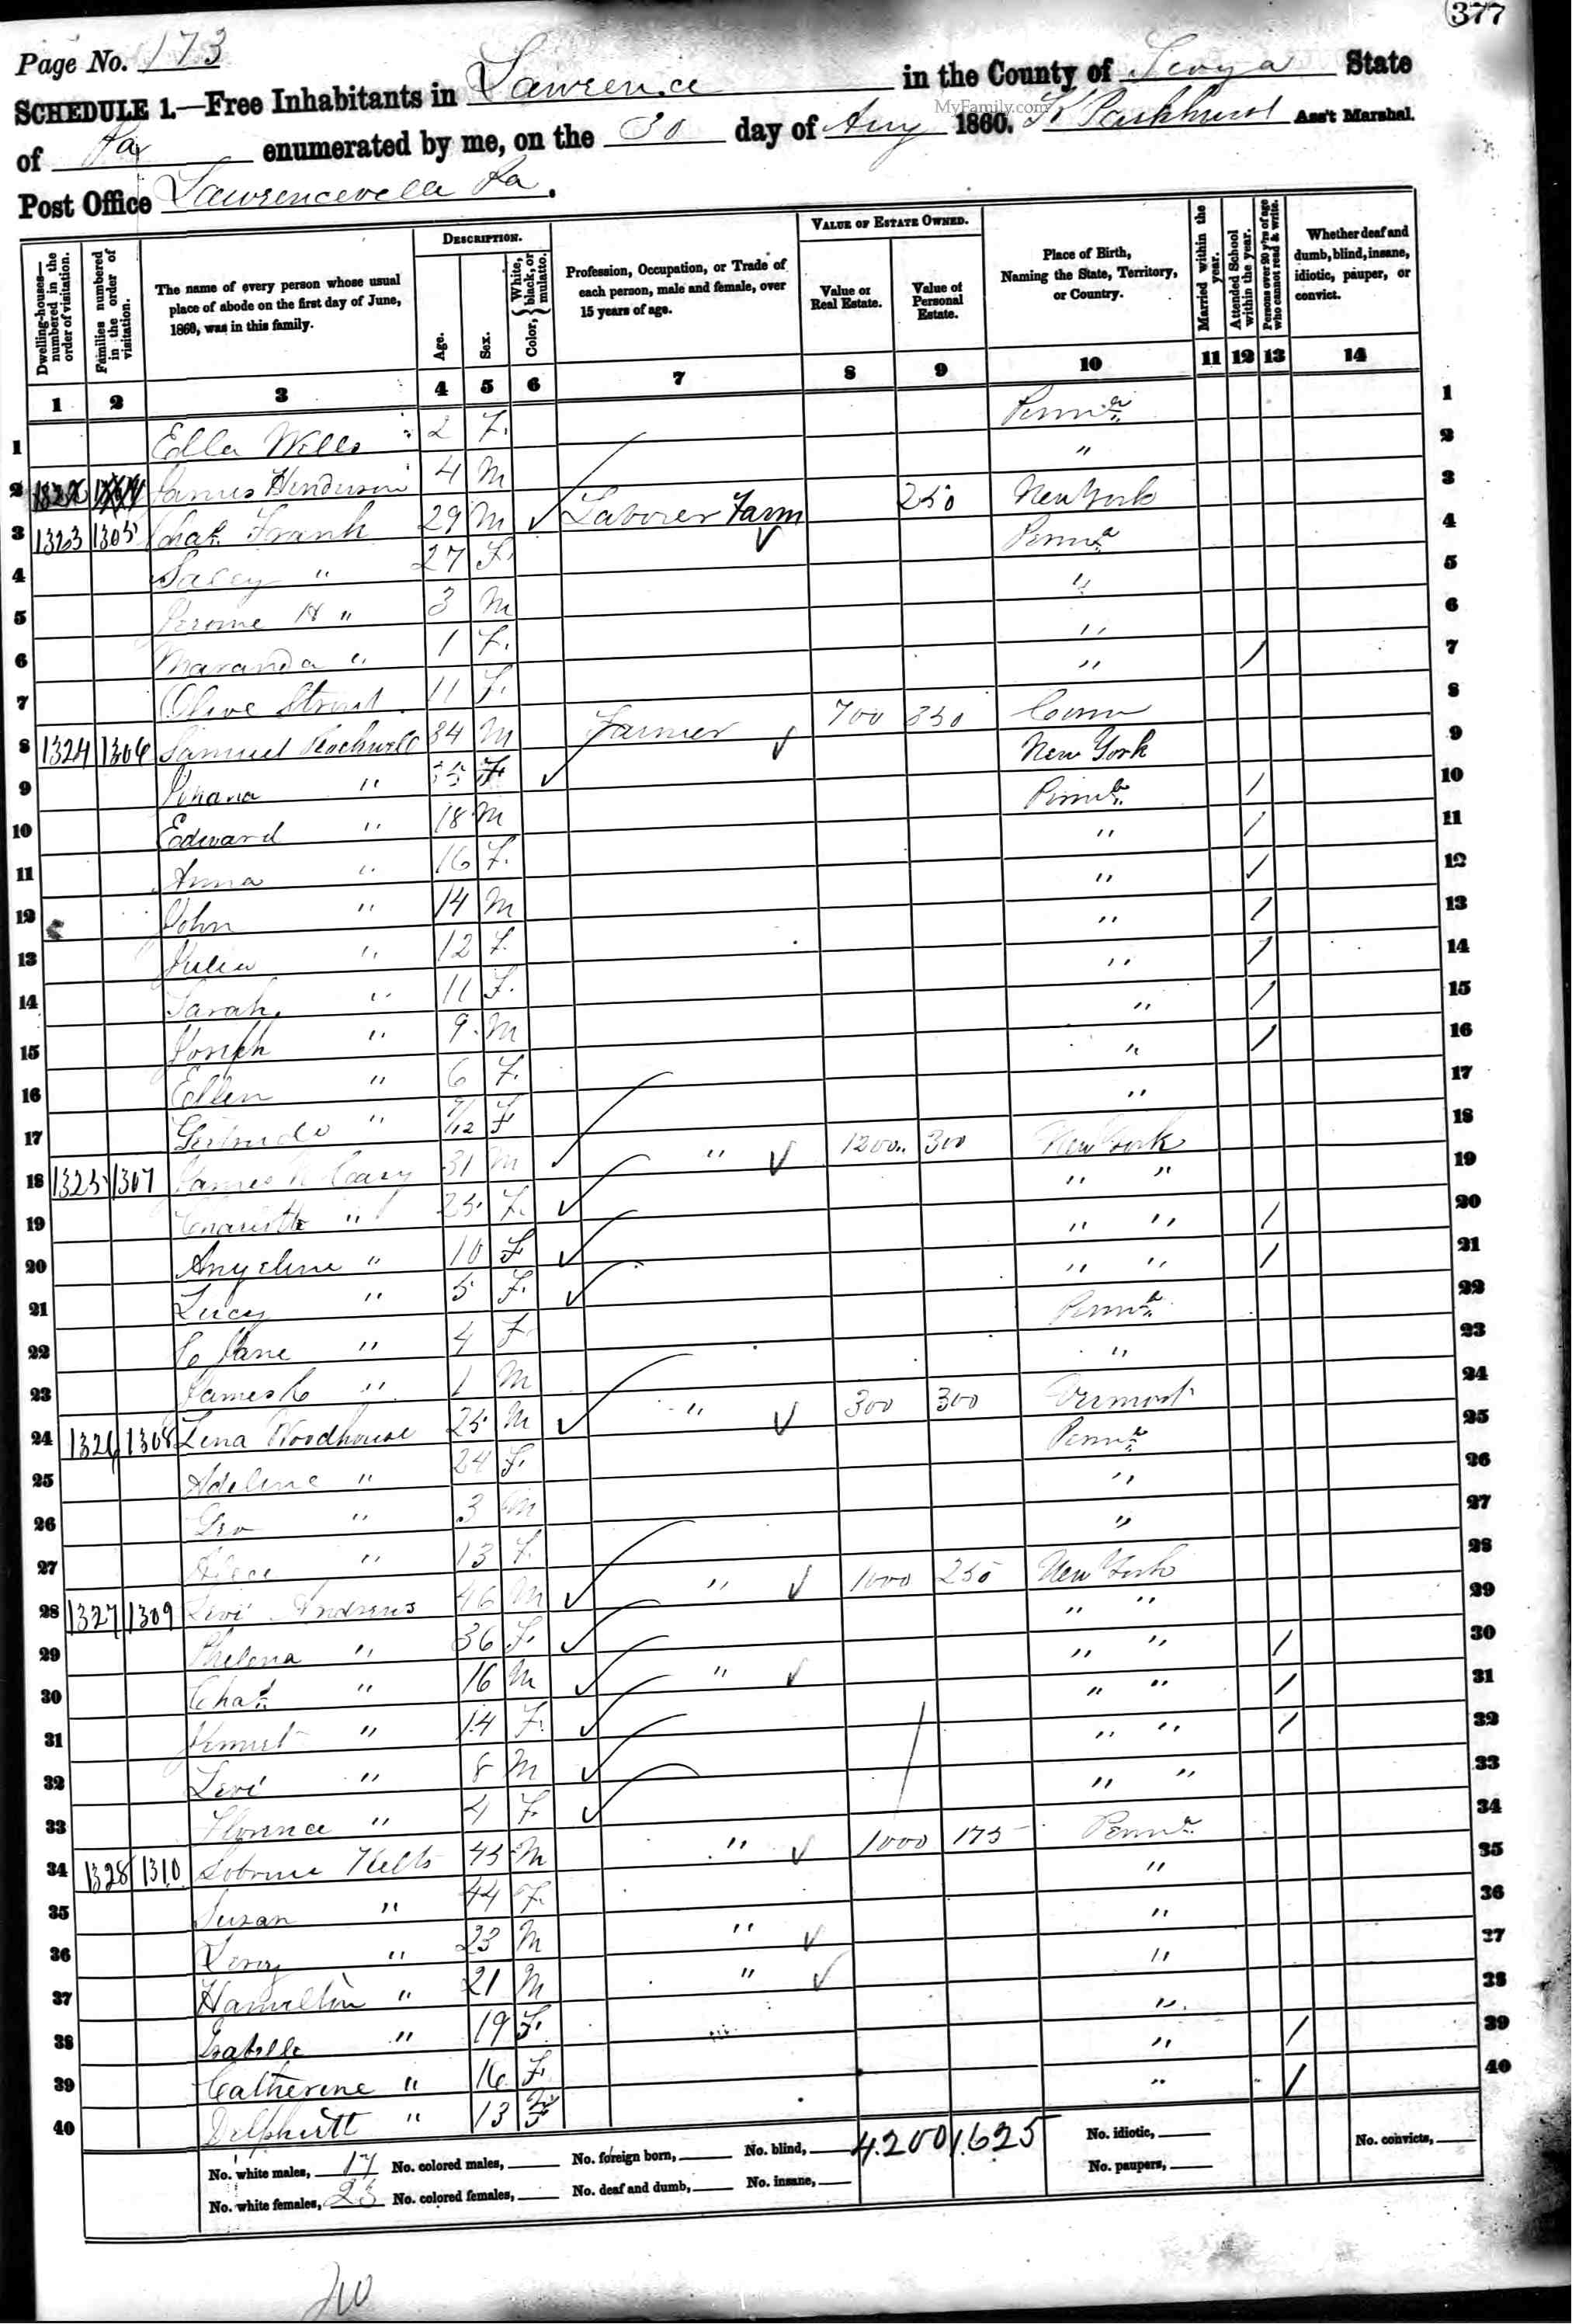 377
Page No. 173
SCHEDULE 1.—Free Inhabitants in Lawrence in the County of Tioga State
of Pa enumerated by me, on the 30 day of Aug 1860. Parkhurst Ass't Marshal.
MyFamily.com
Post Office Lawrenceville Pa.
DESCRIPTION. VALUE OF ESTATE OWNED.
Dwelling-houses—numbered in the order of visitation.
Families numbered in the order of visitation.
The name of every person whose usual place of abode on the first day of June, 1860, was in this family.
Age.
Sex.
Color, { White, black, or mulatto.
Profession, Occupation, or Trade of each person, male and female, over 15 years of age.
Value of Real Estate.
Value of Personal Estate.
Place of Birth, Naming the State, Territory, or Country.
Married within the year.
Attended School within the year.
Persons over 20 y'rs of age who cannot read & write.
Whether deaf and dumb, blind, insane, idiotic, pauper, or convict.
1 2 3 4 5 6 7 8 9 10 11 12 13 14
1 Ella Wells 2 F. Penna 1
2 James Henderson 4 M " 2
3 1323 1305 Chas. Frank 29 M Laborer Farm 250 New York 3
4 Sally " 27 F. Penna 4
5 Jerome H " 3 M " 5
6 Maranda " 1 F. " 6
7 Olive 11 F. " / 7
8 1324 1306 Samuel Rockwell 34 M Farmer 700 Conn 8
9 " 35 F New York 9
10 Edward " 18 M Penna / 10
11 Anna " 16 F. " / 11
12 John " 14 M " / 12
13 Julia " 12 F. " / 13
14 Sarah " 11 F. " / 14
15 Joseph " 9 M " / 15
16 Ellen " 6 F. " / 16
17 Gertrude " 7/12 F " 17
18 1325 1307 James 31 M " 1200 300 New York 18
19 " 25 F. " " 19
20 Angeline " 10 F " " / 20
21 Lucy " 5 F. " " / 21
22 Jane " 4 F. Penna 22
23 James " 1 M " 23
24 1326 1308 Woodhouse 25 M " 300 300 Vermont 24
25 Adeline " 24 F. Penna 25
26 Geo " 3 M " 26
27 " 13 F. " 27
28 1327 1309 Levi Andrews 46 M " 1000 250 New York 28
29 Phelena " 36 F. " " 29
30 Chas. " 16 M " " " / 30
31 " 14 F. " " / 31
32 Levi " 8 M " " / 32
33 Florence " 4 F. " " 33
34 1328 1310 Kelts 45 M " 1000 175 Penna 34
35 Susan " 44 F. " 35
36 Leroy " 23 M " " 36
37 Hamilton " 21 M " " 37
38 Isabelle " 19 F. " 38
39 Catherine " 16 F. " / 39
40 " 13 F " / 40
No. white males, 17 No. colored males, No. foreign born, No. blind, 4.200 1.625 No. idiotic, No. convicts,
No. white females, 23 No. colored females, No. deaf and dumb, No. insane, No. paupers,